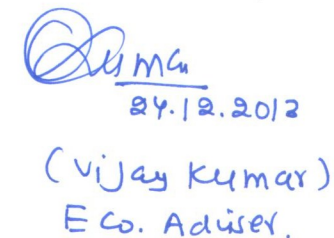 Kumar
24.12.2013
(Vijay Kumar)
Eco. Adviser.